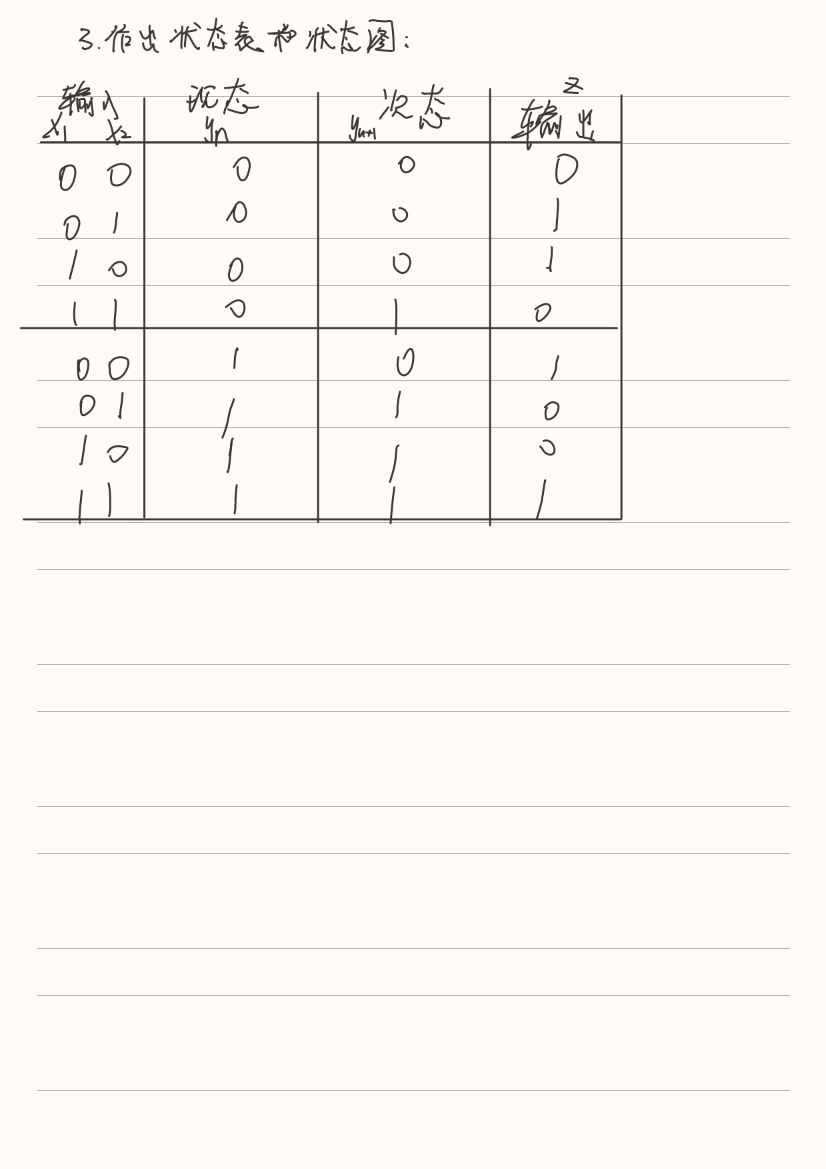 3.作出状态表和状态图:
输入 现态 次态 z
x1 x2 yn yn+1 输出
0 0 0 0 0
0 1 0 0 1
1 0 0 0 1
1 1 0 1 0
0 0 1 0 1
0 1 1 1 0
1 0 1 1 0
1 1 1 1 1